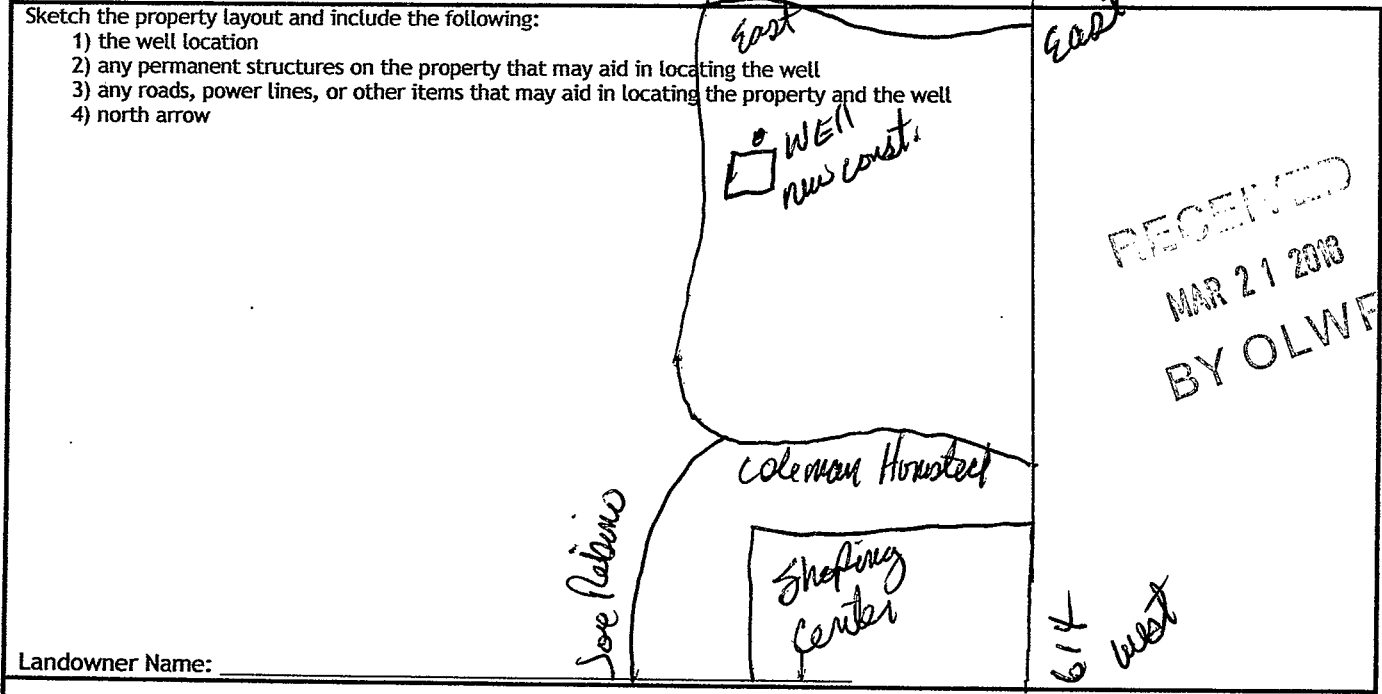 Sketch the property layout and include the following:
1) the well location
2) any permanent structures on the property that may aid in locating the well
3) any roads, power lines, or other items that may aid in locating the property and the well
4) north arrow
East
East
WEll
new const.
RECEIVED
MAR 21 2018
BY OLWR
Coleman Homsted
Joe
Shoping
Center
west
Landowner Name: